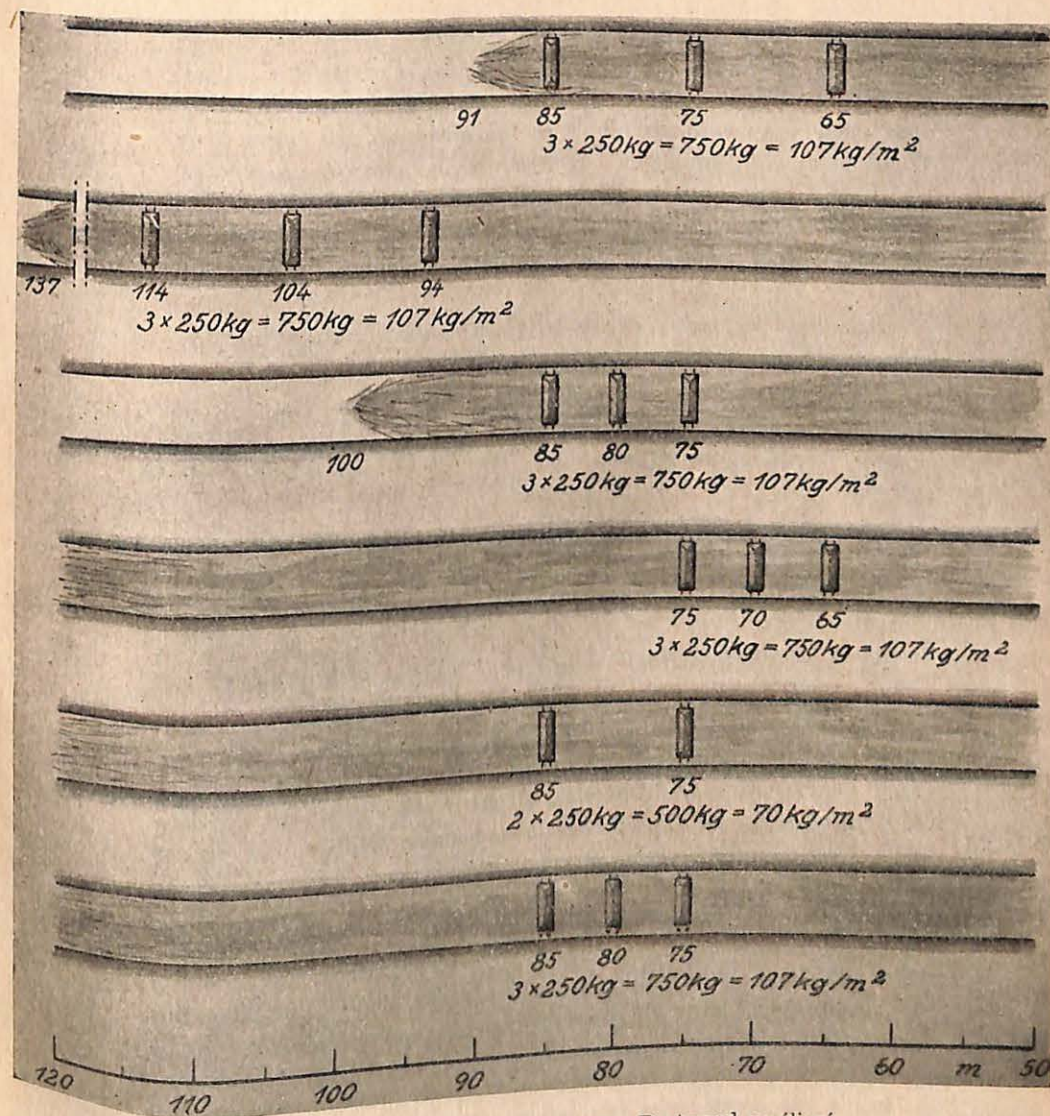 91 85 75 65
3 × 250kg = 750kg = 107kg/m²
137 114 104 94
3 × 250kg = 750kg = 107kg/m²
100 85 80 75
3 × 250kg = 750kg = 107kg/m²
75 70 65
3 × 250kg = 750kg = 107kg/m²
85 75
2 × 250kg = 500kg = 70kg/m²
85 80 75
3 × 250kg = 750kg = 107kg/m²
120 110 100 90 80 70 60 m 50